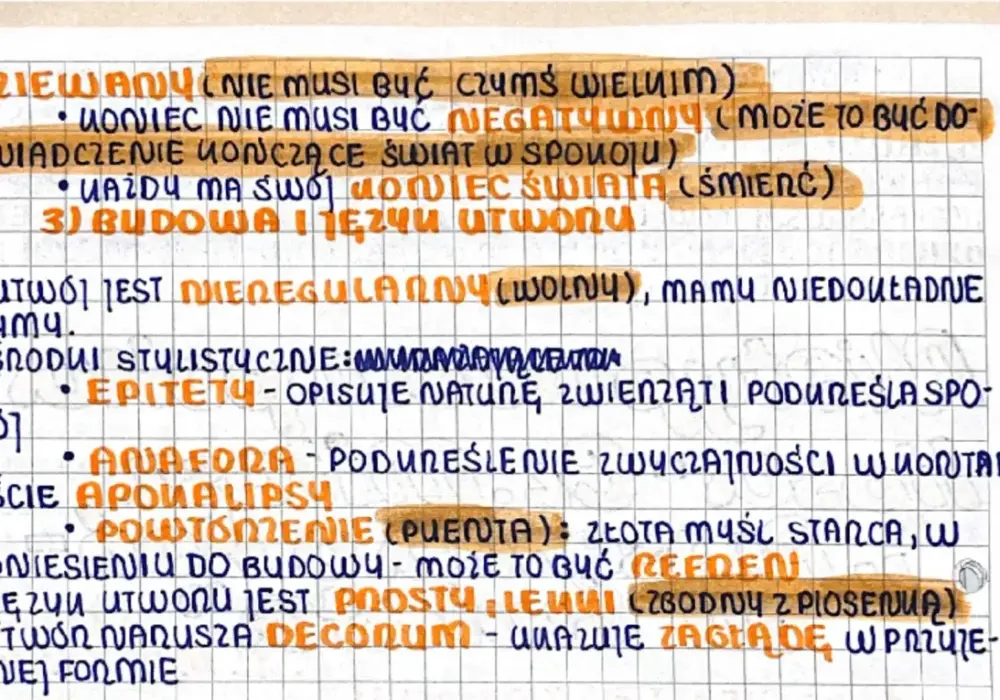 ZIEWANY (NIE MUSI BYĆ CZYMŚ WIELKIM)
• KONIEC NIE MUSI BYĆ NEGATYWNY (MOŻE TO BYĆ DO-
WIADCZENIE KOŃCZĄCE ŚWIAT W SPOKOJU)
• KAŻDY MA SWÓJ KONIEC ŚWIATA (ŚMIERĆ)
3) BUDOWA I JĘZYK UTWORU
UTWÓJ JEST NIEREGULARNY (WOLNY), MAMY NIEDOKŁADNE
YMY.
ŚRODKI STYLISTYCZNE:
• EPITETY - OPISUJE NATURĘ, ZWIERZĄT I PODKREŚLA SPO-
ÓJ
• ANAFORA - PODKREŚLENIE ZWYCZAJNOŚCI W KONTA
ŚCIE APOKALIPSY
• POWTÓRZENIE (PUENTA): ZŁOTA MYŚL STARCA, W
DNIESIENIU DO BUDOWY - MOŻE TO BYĆ REFREN
ĘZYK UTWORU JEST PROSTY, LEKKI (ZGODNY Z PIOSENKĄ)
TWÓR NARUSZA DECORUM - UKAZUJE ZAGŁADĘ W PRZYJE-
NEJ FORMIE